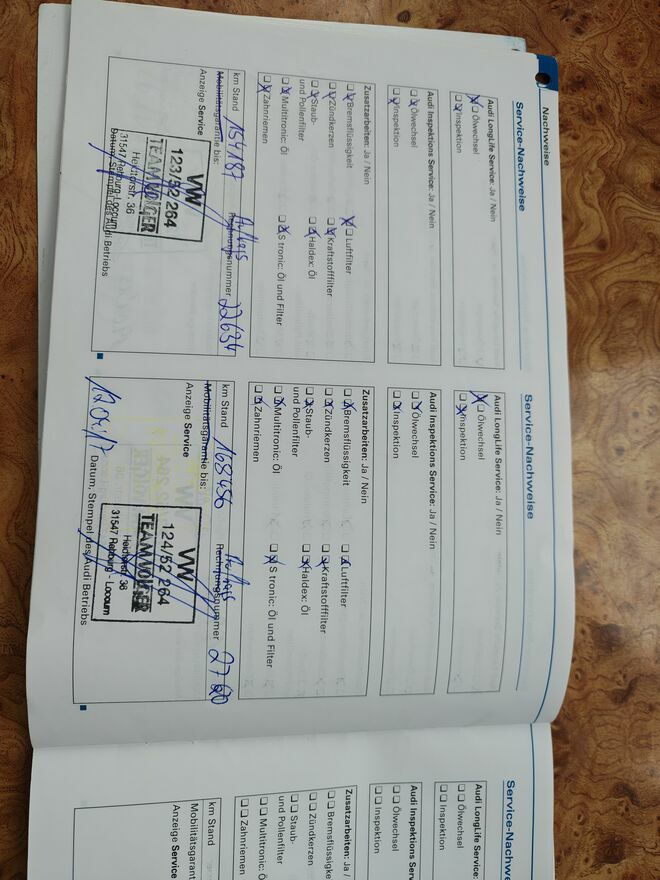 Nachweise
Service-Nachweise
Audi LongLife Service: Ja / Nein
Ölwechsel
Inspektion
Audi Inspektions Service: Ja / Nein
Ölwechsel
Inspektion
Zusatzarbeiten: Ja / Nein
Bremsflüssigkeit
Luftfilter
Zündkerzen
Kraftstofffilter
Staub-
und Pollenfilter
Haldex: Öl
Multitronic: Öl
S tronic: Öl und Filter
Zahnriemen
km Stand 154187
Rechnungsnummer 22634
Mobilitätsgarantie bis:
Anzeige Service
VW
123/52 264
Heidtorstr. 36
31547 Rehburg-Loccum
Datum, Stempel des Audi Betriebs
Service-Nachweise
Audi LongLife Service: Ja / Nein
Ölwechsel
Inspektion
Audi Inspektions Service: Ja / Nein
Ölwechsel
Inspektion
Zusatzarbeiten: Ja / Nein
Bremsflüssigkeit
Luftfilter
Zündkerzen
Kraftstofffilter
Staub-
und Pollenfilter
Haldex: Öl
Multitronic: Öl
S tronic: Öl und Filter
Zahnriemen
km Stand 168456
Rechnungsnummer
Mobilitätsgarantie bis:
Anzeige Service
VW
124/52 264
31547 Rehburg - Loccum
Datum, Stempel des Audi Betriebs
Service-Nachw
Audi LongLife Service:
Ölwechsel
Inspektion
Audi Inspektions Service
Ölwechsel
Inspektion
Zusatzarbeiten: Ja /
Bremsflüssigkeit
Zündkerzen
Staub-
und Pollenfilter
Multitronic: Ö
Zahnriemen
km Stand
Mobilitätsgaran
Anzeige Service